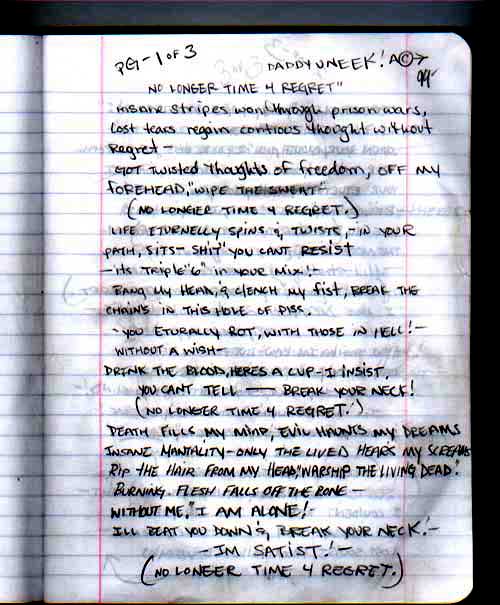 PG-1 OF 3
DADDY UNEEK! A©
99
NO LONGER TIME 4 REGRET"
"insane stripes won through prison wars,
Lost tears regain contious thought without
Regret-
GOT twisted thoughts of freedom, OFF MY
FOREHEAD, "WIPE THE SWEAT"
(NO LONGER TIME 4 REGRET.)
LIFE ETURNELLY SPINS & TWISTS,-IN YOUR
PATH, SITS-SHIT" YOU CANT RESIST
-its TRIPLE "6" in YOUR MIX!-
BANG MY HEAD, & CLENCH MY fist, BREAK THE
CHAINS IN THIS HOLE OF PISS.
-YOU ETURALLY ROT, WITH THOSE IN HELL!-
WITHOUT A WISH-
DRINK THE BLOOD, HERES A CUP-I INSIST,
YOU CANT TELL — BREAK YOUR NECK!
(NO LONGER TIME 4 REGRET.)
DEATH FILLS MY MIND, EVIL HAUNTS MY DREAMS
INSANE MANTALITY-ONLY THE LIVED HEARS MY SCREAMS
RIP THE HAIR FROM MY HEAD, "WARSHIP THE LIVING DEAD!
BURNING. FLESH FALLS OFF THE BONE-
WITHOUT ME," I AM ALONE!-
ILL BEAT YOU DOWN &, BREAK YOUR NECK!-
-IM SATIST!-
(NO LONGER TIME 4 REGRET.)